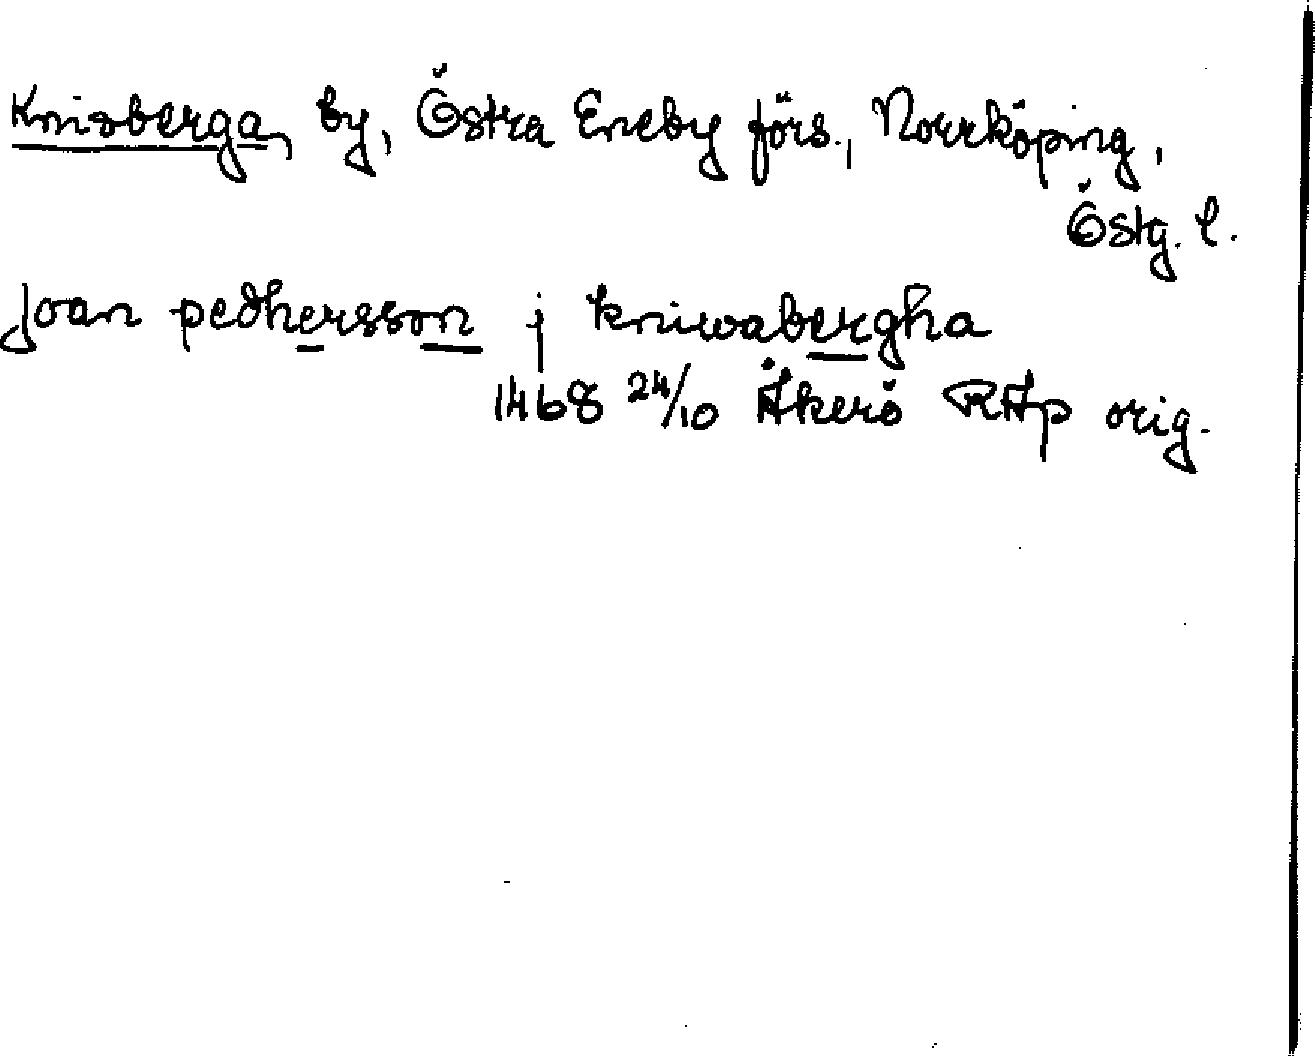 Knivberga, by, Östra Eneby förs., Norrköping,
Östg. l.
Joan pedhersson j kniwabergha
1468 24/10 Åkerö RAp orig.